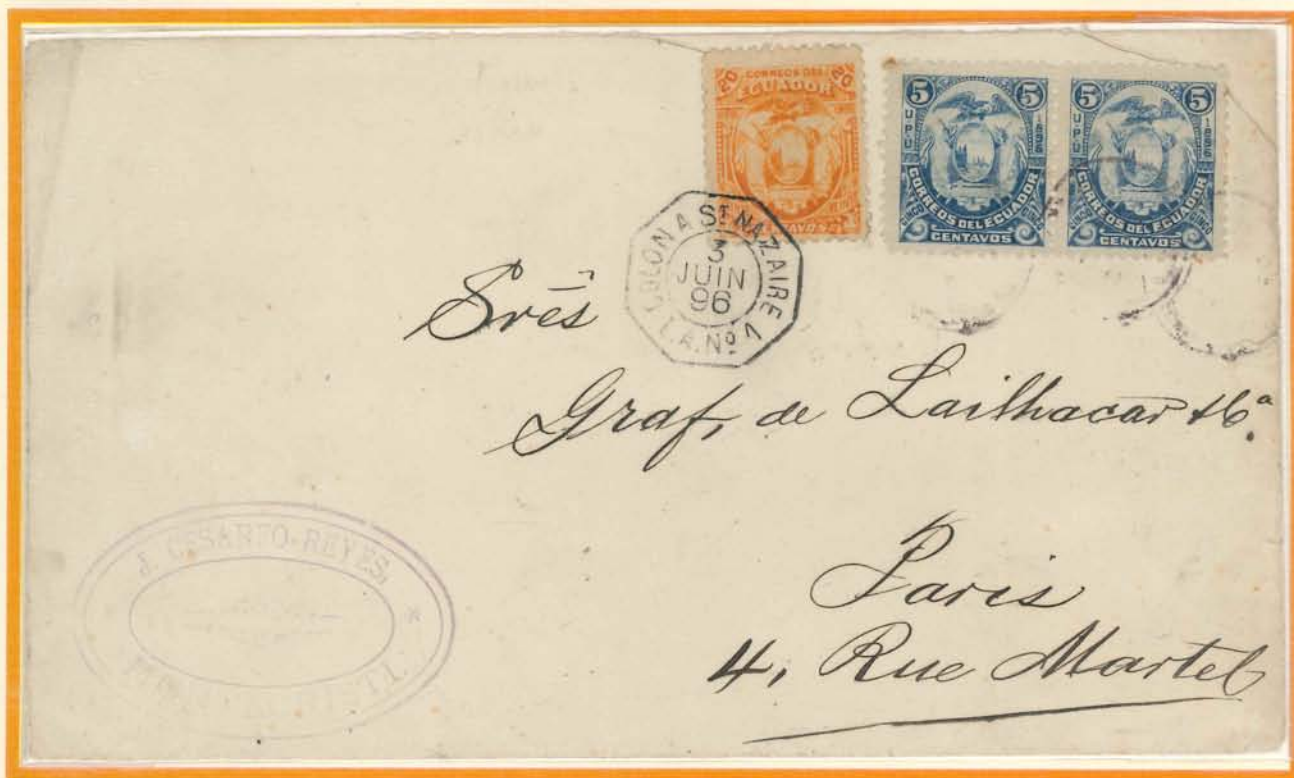 20 CORREOS DEL 20
ECUADOR
5 5
UPU 1896
CORREOS DEL ECUADOR
CINCO CINCO
CENTAVOS
5 5
UPU 1896
CORREOS DEL ECUADOR
CINCO CINCO
CENTAVOS
COLON A ST NAZAIRE
3
JUIN
96
L.A. No 1
Srēs
Graf, de Lailhacar & Cª.
Paris
4, Rue Martel
J. CESAREO-REYES,